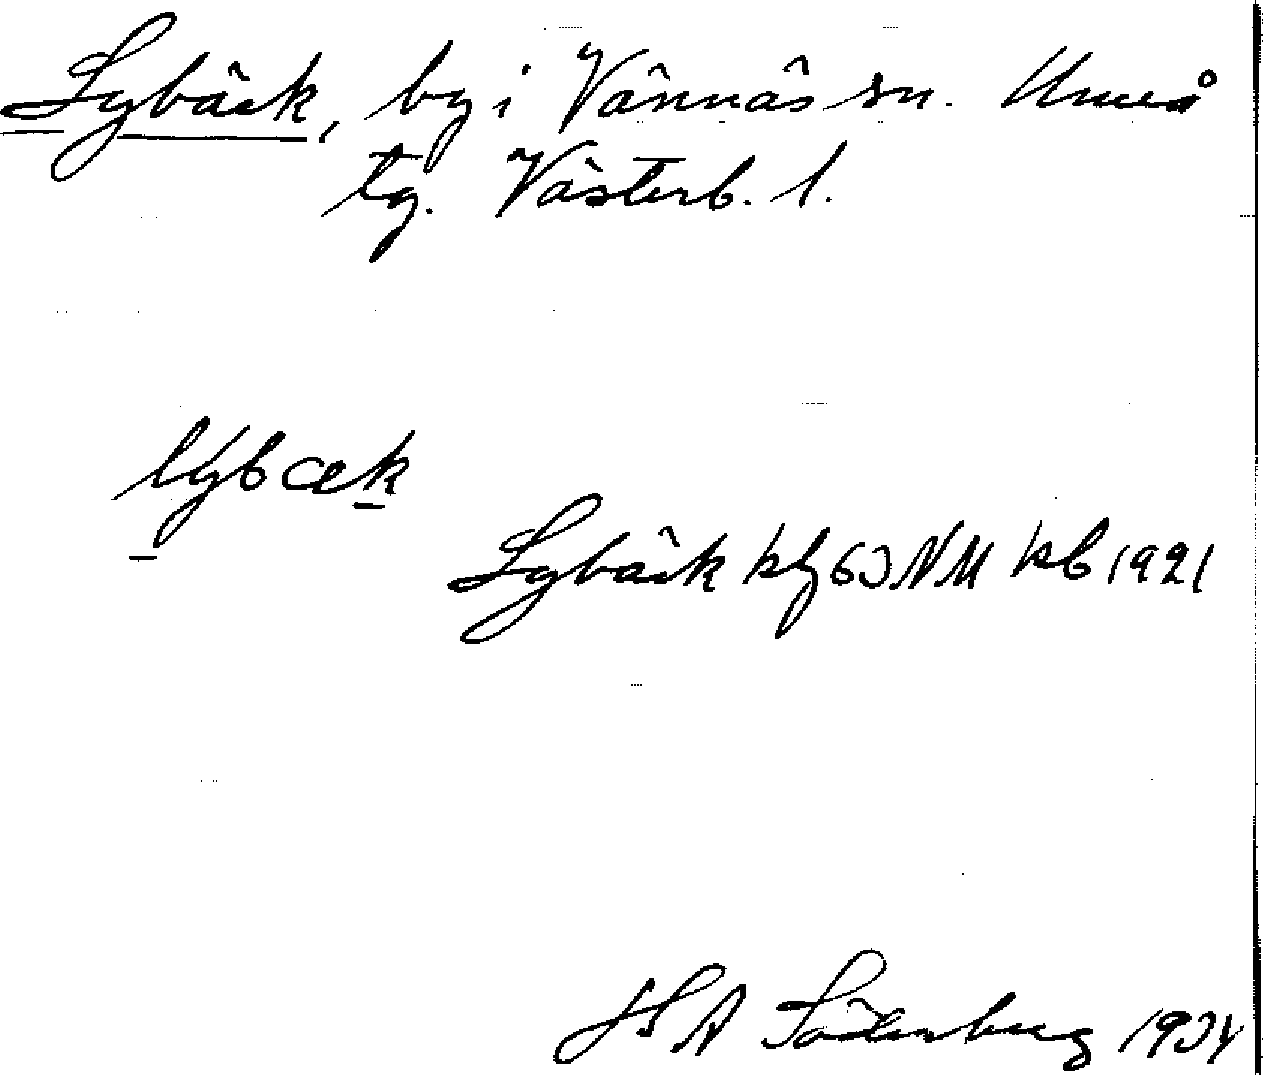 Lybäck, by i Vännäs sn. Umeå
tg. Västerb. l.
lýbæk
Lybäck kbl 63 NM kb 1921
H S A Söderberg 1934